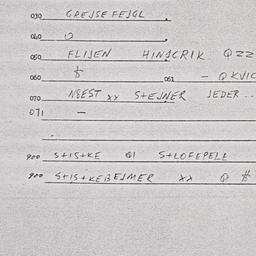 030 GREJSE FEJGL
040
050 FLIJEN HINSCRIK QZZ
060 052 - QKVIC
070 NGEST xx S+EJNER JEDER ..
071 -
900 S+IS+KE QI S+LOFEPELE
900 S+IS+KEBEJMER xx Q